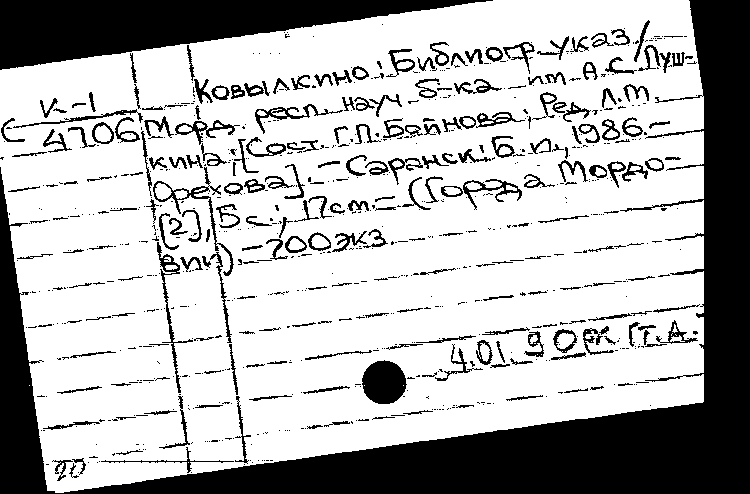 Ковылкино: Библиогр. указ/
К-1
С 4706
Морд. респ. науч. б-ка им. А.С. Пуш-
кина; [Сост. Г.П. Бойнова; Ред. Л.М.
Орехова]. - Саранск: Б.и., 1986. -
[2], 5 с.; 17 см. - (Города Мордо-
вии). - 700 экз.
4.01.90 РК Гт.А.
20